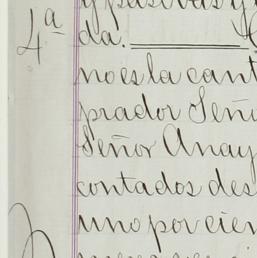 y pasivas y
4ª
da.
no es la cant
prador Seño
Señor Anay
contados des
uno por cien